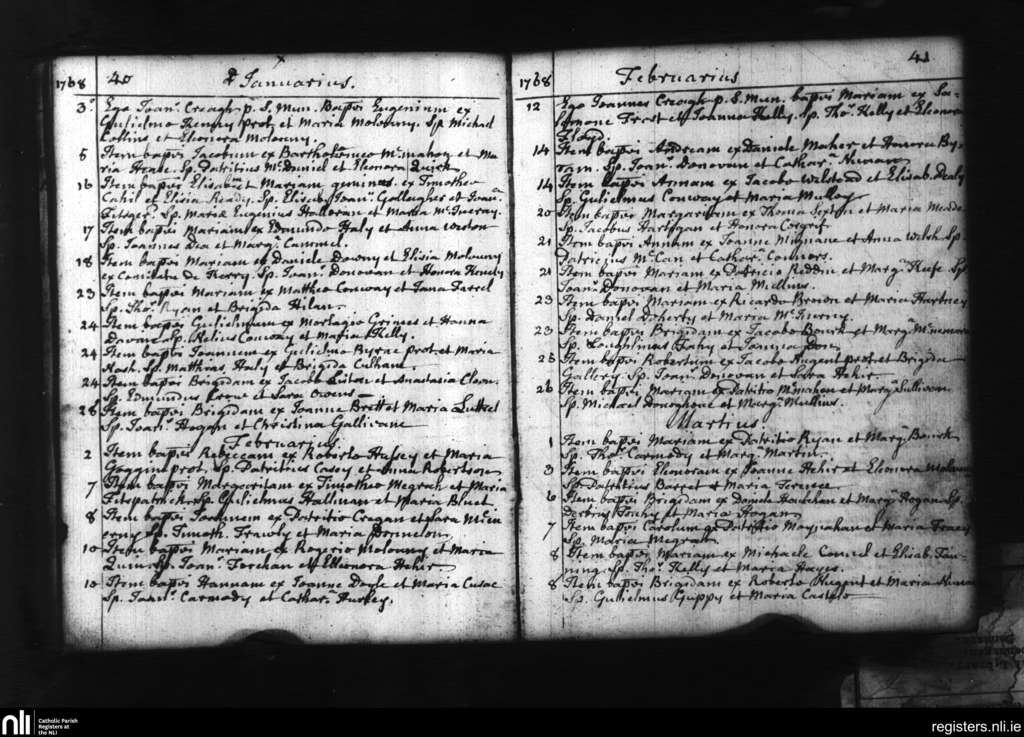 1768 40 Januarius.
3 Ego Joan. Creagh p. S. Mun. Bapvi Eugenium ex
Gulielmo Henry prot. et Maria Molouny. Sp. Michael
Collins et Eleonora Molouny.
5 Item bapvi Jacobum ex Bartholomeo McMahon et Ma
ria Sp. Patritius McDaniel et Eleonora Quirk
16 Item bapvi Elisab. et Mariam geminas ex Timotheo
Cahil et Elisia Ready. Sp. Elisab. Joan. Gallagher et Joan.
Fitzger. Sp. Maria Eugenius Halloran et Maria
17 Item bapvi Mariam ex Edmundo Haly et Anna Weston
Sp. Joannes Dea et Marg. Cammel.
18 Item bapvi Mariam ex Daniele Downy et Elisia Molouny
ex Comitatu de Kerry. Sp. Joan. Donovan et Honora
23 Item bapvi Mariam ex Mattheo Conway et Jana Farrel
Sp. Tho. Ryan et Brigida
24 Item bapvi Gulielmum ex Mortagio Grimes et Hanna
Sp. Conway et Maria Kelly.
24 Item bapvi Joannem ex Gulielmo Byrne prot. et Maria
Nash. Sp. Matthias Haly et Brigida
24 Item bapvi Brigidam ex Jacobo et Anastasia
Sp. Edmundus Crowe et Sara Owens
28 Item bapvi Brigidam ex Joanne Brett et Maria Luttrel
Sp. Joan. Hogan et Christina Gallivane
Februarius.
2 Item bapvi Rebeccam ex Roberto Halsey et Maria
Goggin prot. Sp. Patritius Casey et Anna Robertson
7 Item bapvi Margaritam ex Timotheo Megrath et Maria
Fitspatrick. Sp. Gulielmus Hallinan et Maria
8 Item bapvi Joannem ex Patritio Cregan et Sara McIn
erny Sp. Timoth. Frawly et Maria
10 Item bapvi Mariam ex Rogerio Molouny et Maria
Quin. Sp. Joan. et Ellionora Hehir
10 Item bapvi Hannam ex Joanne Doyle et Maria Cusac
Sp. Joan. Carmody et Cathar. Hurley.
1768 Februarius 41
12 Ego Joannes Creagh p. S. Mun. bapvi Mariam ex So-
lomone Frost et Joanna Kelly. Sp. Tho. Kelly et Eleonora
Floyd.
14 Item bapvi Andream ex Daniele Maher et Honora By-
ran. Sp. Joan. Donovan et Cathar.
14 Item bapvi Annam ex Jacobo et Elisab. Dealy
Sp. Gulielmus Conway et Maria Mulloy
20 Item bapvi Margaretam ex Thoma Sexton et Maria Meade
Sp. Jacobus Hartigan et Honora Cosgrif
21 Item bapvi Annam ex Joanne et Anna Welsh Sp.
Patricius McCan et Cathar. Connors.
21 Item bapvi Mariam ex Patricio Reddin et Marg. Keefe Sp.
Joan. Donovan et Maria Mullins.
23 Item bapvi Mariam ex Ricardo Brown et Maria Hartney
Sp. Daniel Doherty et Maria
23 Item bapvi Brigidam ex Jacobo Bourk et Marg. McNemara
Sp. Loughlinus Fahy et Joanna
25 Item bapvi Robertum ex Jacobo Nugent prot. et Brigida
Gallery. Sp. Joan. Donovan et Sara Hehir
26 Item bapvi Mariam ex Patritio McMahon et Marg. Sullivan
Sp. Michael Donoghoue et Marg. Mullins.
Martius.
1 Item bapvi Mariam ex Patritio Ryan et Marg. Bourk
Sp. Tho. Carmody et Marg. Martin.
3 Item bapvi Elionoram ex Joanne Hehir et Elionora
Sp. Patritius Barret et Maria
6 Item bapvi Brigidam ex Daniele Hourihan et Marg. Hogan Sp.
et Maria Hogan
7 Item bapvi Carolum ex Patritio Moynahan et Maria Tracey
Sp. Maria Megrath
8 Item bapvi Mariam ex Michaele et Elisab. Fan-
ning. Sp. Tho. Kelly et Maria Hayes.
8 Item bapvi Brigidam ex Roberto Nugent et Maria
Sp. Gulielmus Guppy et Maria Castelo
nli
Catholic Parish
Registers at
the NLI
registers.nli.ie